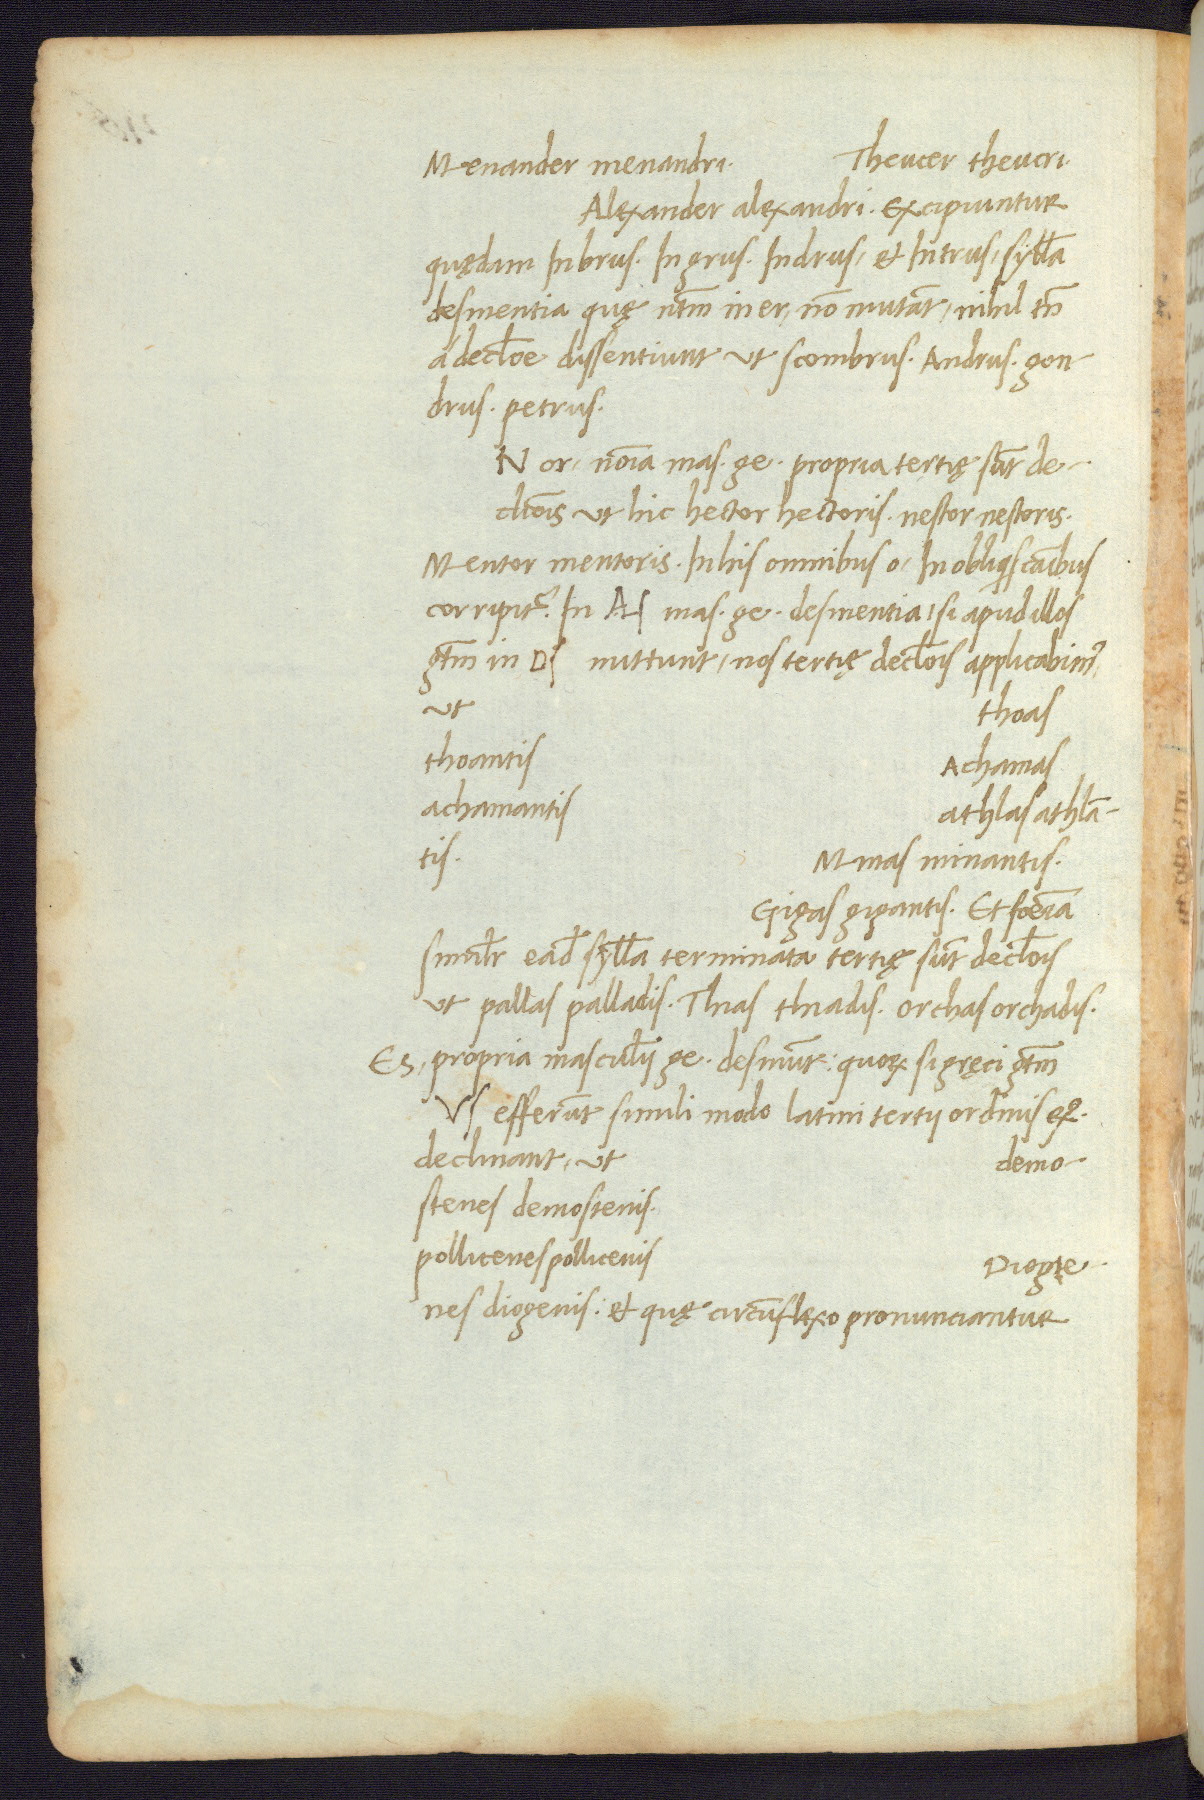 Menander menandri. Theucer theucri.
Alexander alexandri. Excipiuntur
quędam In brus. In grus. In drus, et In trus, syll̄a
desinentia quę ut̄m in er, nō mutāt, nihil tn̄
a decl̄oe dissentiunt ut scombrus. Andrus. gon
drus. petrus.
N or, noīa mas. ge. propria tertię sūt de-
cl̄iois ut hic hector hectoris. nestor nestoris.
Mentor mentoris. In his omnibus o, In obliq̄s cāibus
corripit̄. In AS mas. ge. desinentia, si apud illos
gt̄m in OS mittunt, nos tertię decl̄ois applicabim̄,
ut thoas
thoantis Achamas
achamantis athlas athlā-
tis. Mimas minantis.
Gigas gigantis. Et foeīa
similr̄ ead̄ syll̄a terminata tertię sūt decl̄ois
ut pallas palladis. Thias thiadis. orchas orchadis.
ES, propria masculīj ge. desinūt: quoꝝ si gręci gt̄m
VS efferūt simili modo latini tertij ordinis
declinant, ut demo-
stenes demostenis.
pollicenes pollicenis Dioge-
nes diogenis: et quę circūflexo pronunciantur